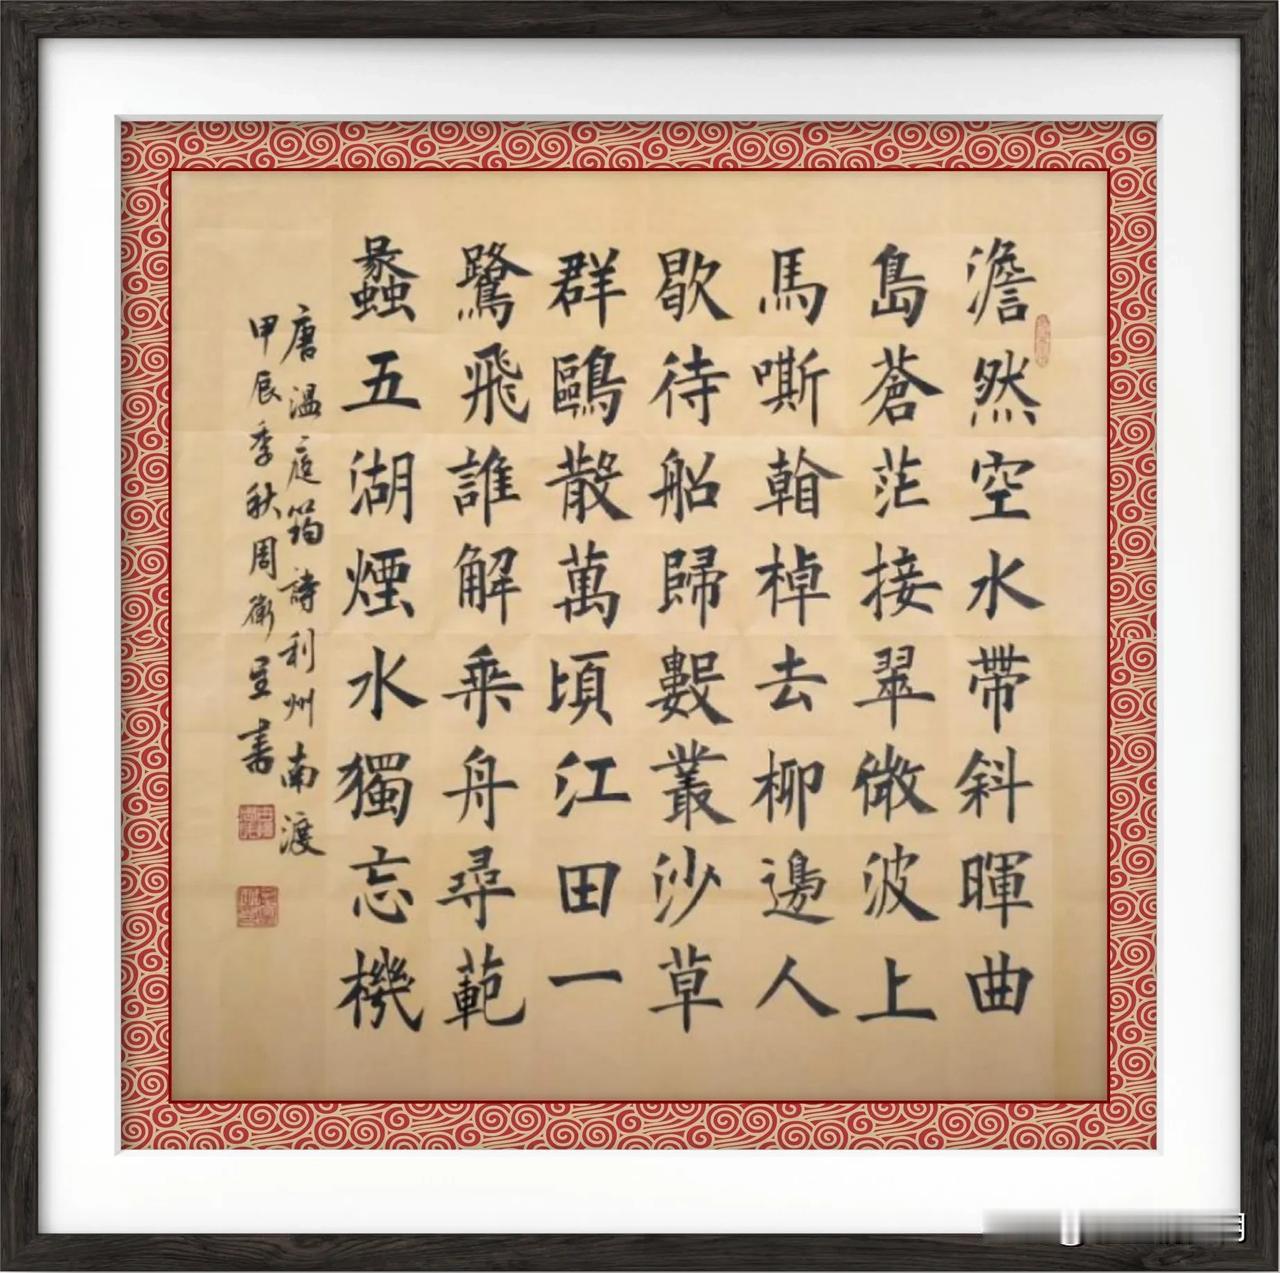 澹然空水帶斜暉曲
島蒼茫接翠微波上
馬嘶看棹去柳邊人
歇待船歸數叢沙草
群鷗散萬頃江田一
鷺飛誰解乗舟尋範
蠡五湖煙水獨忘機
唐温庭筠詩利州南渡
甲辰季秋周衛星書